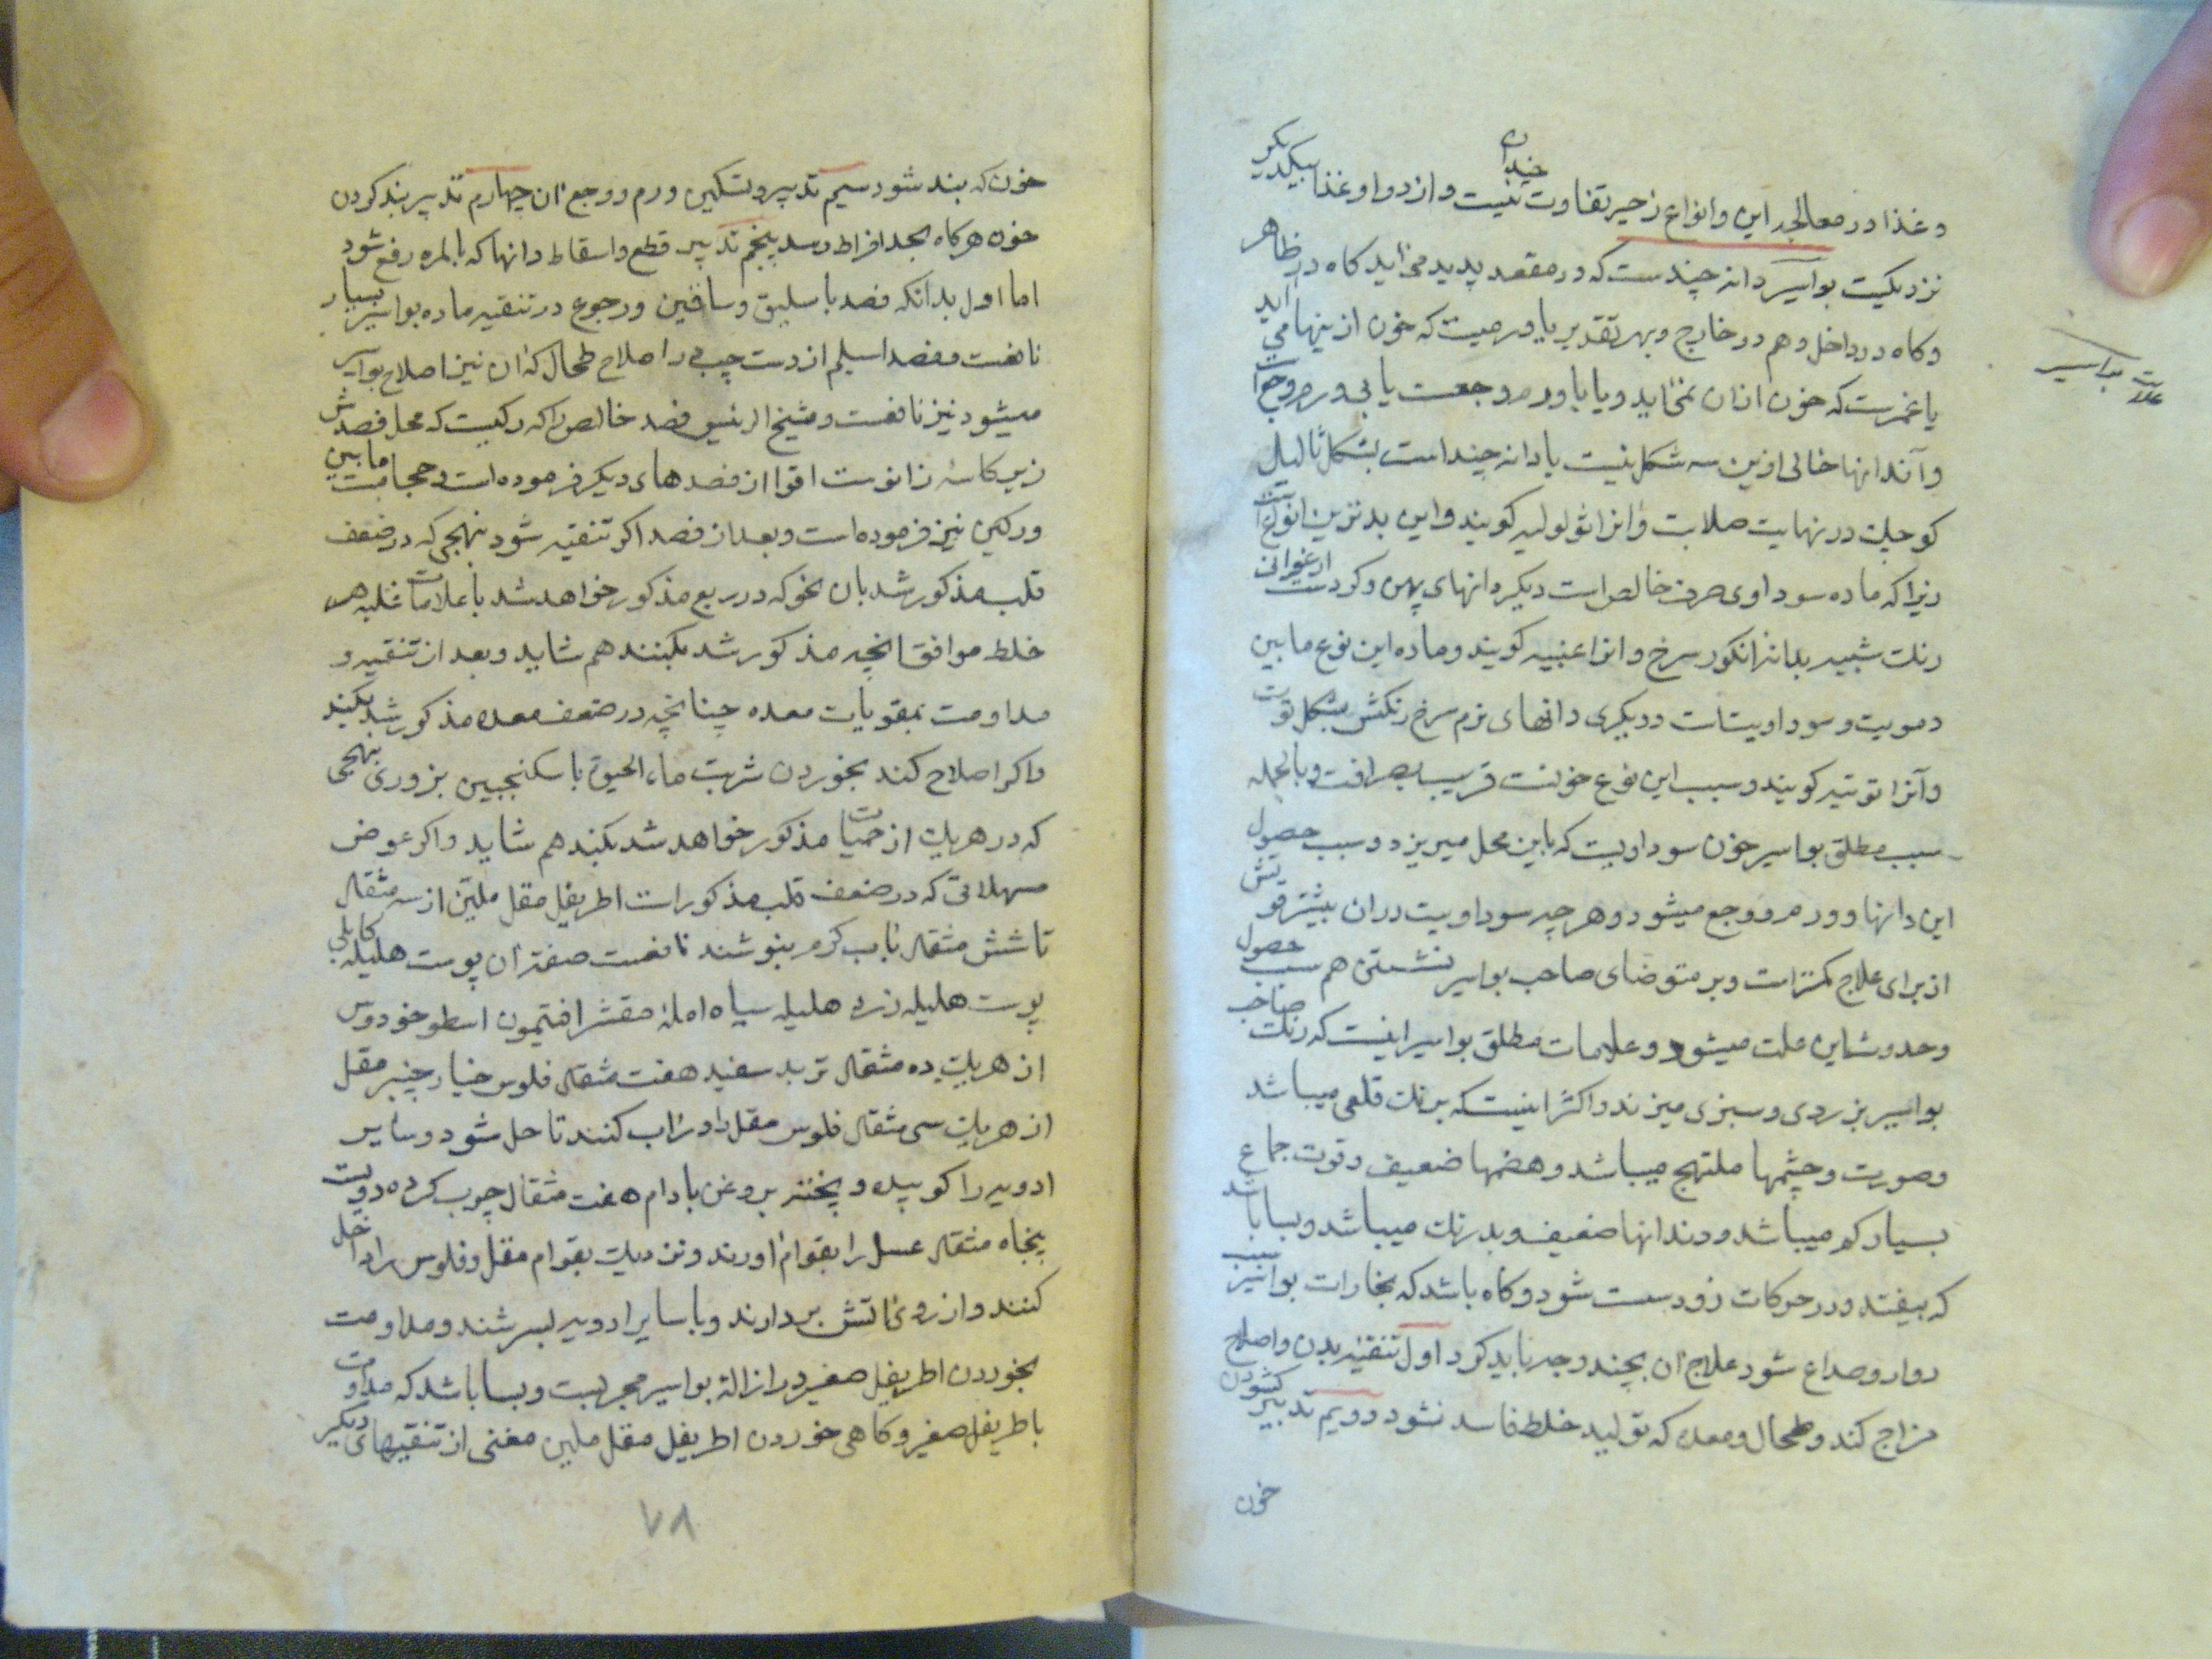 وغذا در معالجه این وانواع زحیر تفاوت چندان نیست واز دوا وغذا بیکدیگر
نزدیکیت بواسیر دانه چندست که در مقعد پدید می آید کاه در ظاهر
وکاه در داخل وهم در خارج وبهر تقدیر یا ورمیست که خون از ینها می آید
علامت بواسیر
یا غیرست که خون ازان نمی آید ویا با ورم ووجعست یا بی ورم ووجع است
وآن دانها خالی ازین سه شکل نیست یا دانه چند است بشکل ثالیل
کوچك در نهایت صلابت وانرا ثولولیه کویند واین بدترین انواع است
زیرا که ماده سوداوی صرف خالص است دیگر دانهای پهن وکرد است ارغوانی
رنك شبیه بدانه انکور سرخ وانرا عنبیه کویند وماده این نوع مابین
دمویت وسوداویتست ودیگری دانهای نرم سرخ رنکش بشکل توت
وآنرا توتیه کویند وسبب این نوع خونست قریب بصرافت وبالجمله
سبب مطلق بواسیر خون سوداویت که باین محل میریزد وسبب حصول
این دانها وورم ووجع میشود وهر چه سوداویت دران بیشتر قوتش
از برای علاج کمتر است وبر متوضای صاحب بواسیر نشستن هم سبب حصول
وحدوث این علت میشود وعلامات مطلق بواسیر اینست که رنك صاحب
بواسیر بزردی وسبزی میزند واکثر اینست که برنك قلعی میباشد
وصورت وچشمها ملتهج میباشد وهضمها ضعیف وقوت جماع
بسیار کم میباشد ودندانها ضعیف وبد رنك میباشد وبسا باشد
که بیفتد ودر حرکات زود سست شود وکاه باشد که بخارات بواسیر سبب
دوار وصداع شود علاج آن بچند وجه باید کرد اول تنقیه بدن واصلاح
مزاج کند وطحال ومعده که تولید خلط فاسد نشود دویم تدبیر کشودن
خون
خون که بند شود سیم تدبیر وتسکین ورم ووجع آن چهارم تدبیر بند کردن
خون هرکاه بحد افراط رسد پنجم تدبیر قطع واسقاط دانها که بالمره رفع شود
اما اول بدانکه فصد باسلیق وسافین ورجوع در تنقیه ماده بواسیر بسیار
نافعست وفصد اسیلم از دست چپ در اصلاح طحال که ان نیز اصلاح بواسیر
میشود نیز نافعست وشیخ الرئیس فصد خالص را که رکیست که محل فصدش
زیر کاسهٔ زانوست اقوا از فصدهای دیگر فرموده است وحجامت مابین
ورکین نیز فرموده است وبعد از فصد اکر تنقیه شود بنهجی که در ضعف
قلب مذکور شد بان نحو که در ربع مذکور خواهد شد با علامات غلبه هر
خلط موافق انچه مذکور شد بکنند هم شاید وبعد از تنقیه و
مداومت بمقویات معده چنانچه در ضعف معده مذکور شد بکنید
واکر اصلاح کند بخوردن شربت ماء الحیوة با سکنجبین بزوری بنهجی
که در هریك از حمیات مذکور خواهد شد بکنند هم شاید واکر عوض
مسهلاتی که در ضعف قلب مذکور است اطریفل مقل ملین از سه مثقال
تا شش مثقال باب کرم بنوشند نافعست صفة آن پوست هلیله کابلی
پوست هلیله زرد هلیله سیاه املهٔ مقشر افتیمون اسطوخودوس
از هریك ده مثقال تربد سفید هفت مثقال فلوس خیار چنبر مقل
از هریك سی مثقال فلوس مقل را در آب کنند تا حل شود وسایر
ادویه را کوبیده وپخته بروغن بادام هفت مثقال چرب کرده دویست
پنجاه مثقال عسل را بقوام آورند ونزدیك بقوام مقل وفلوس را داخل
کنند واز روی آتش بردارند وبا سایر ادویه بسرشند ومداومت
بخوردن اطریفل صغیر در ازالهٔ بواسیر مجربست وبسا باشد که مداومت
باطریفل صغیر وکاهی خوردن اطریفل مقل ملین مغنی از تنقیهای دیگر
٧٨